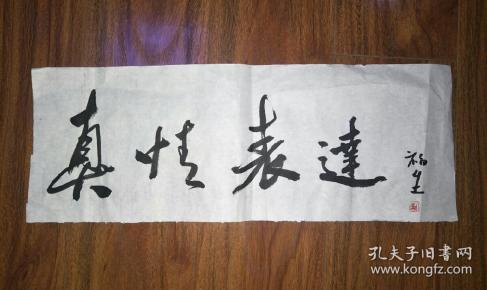 真情表達
福生
孔夫子旧书网
www.kongfz.com